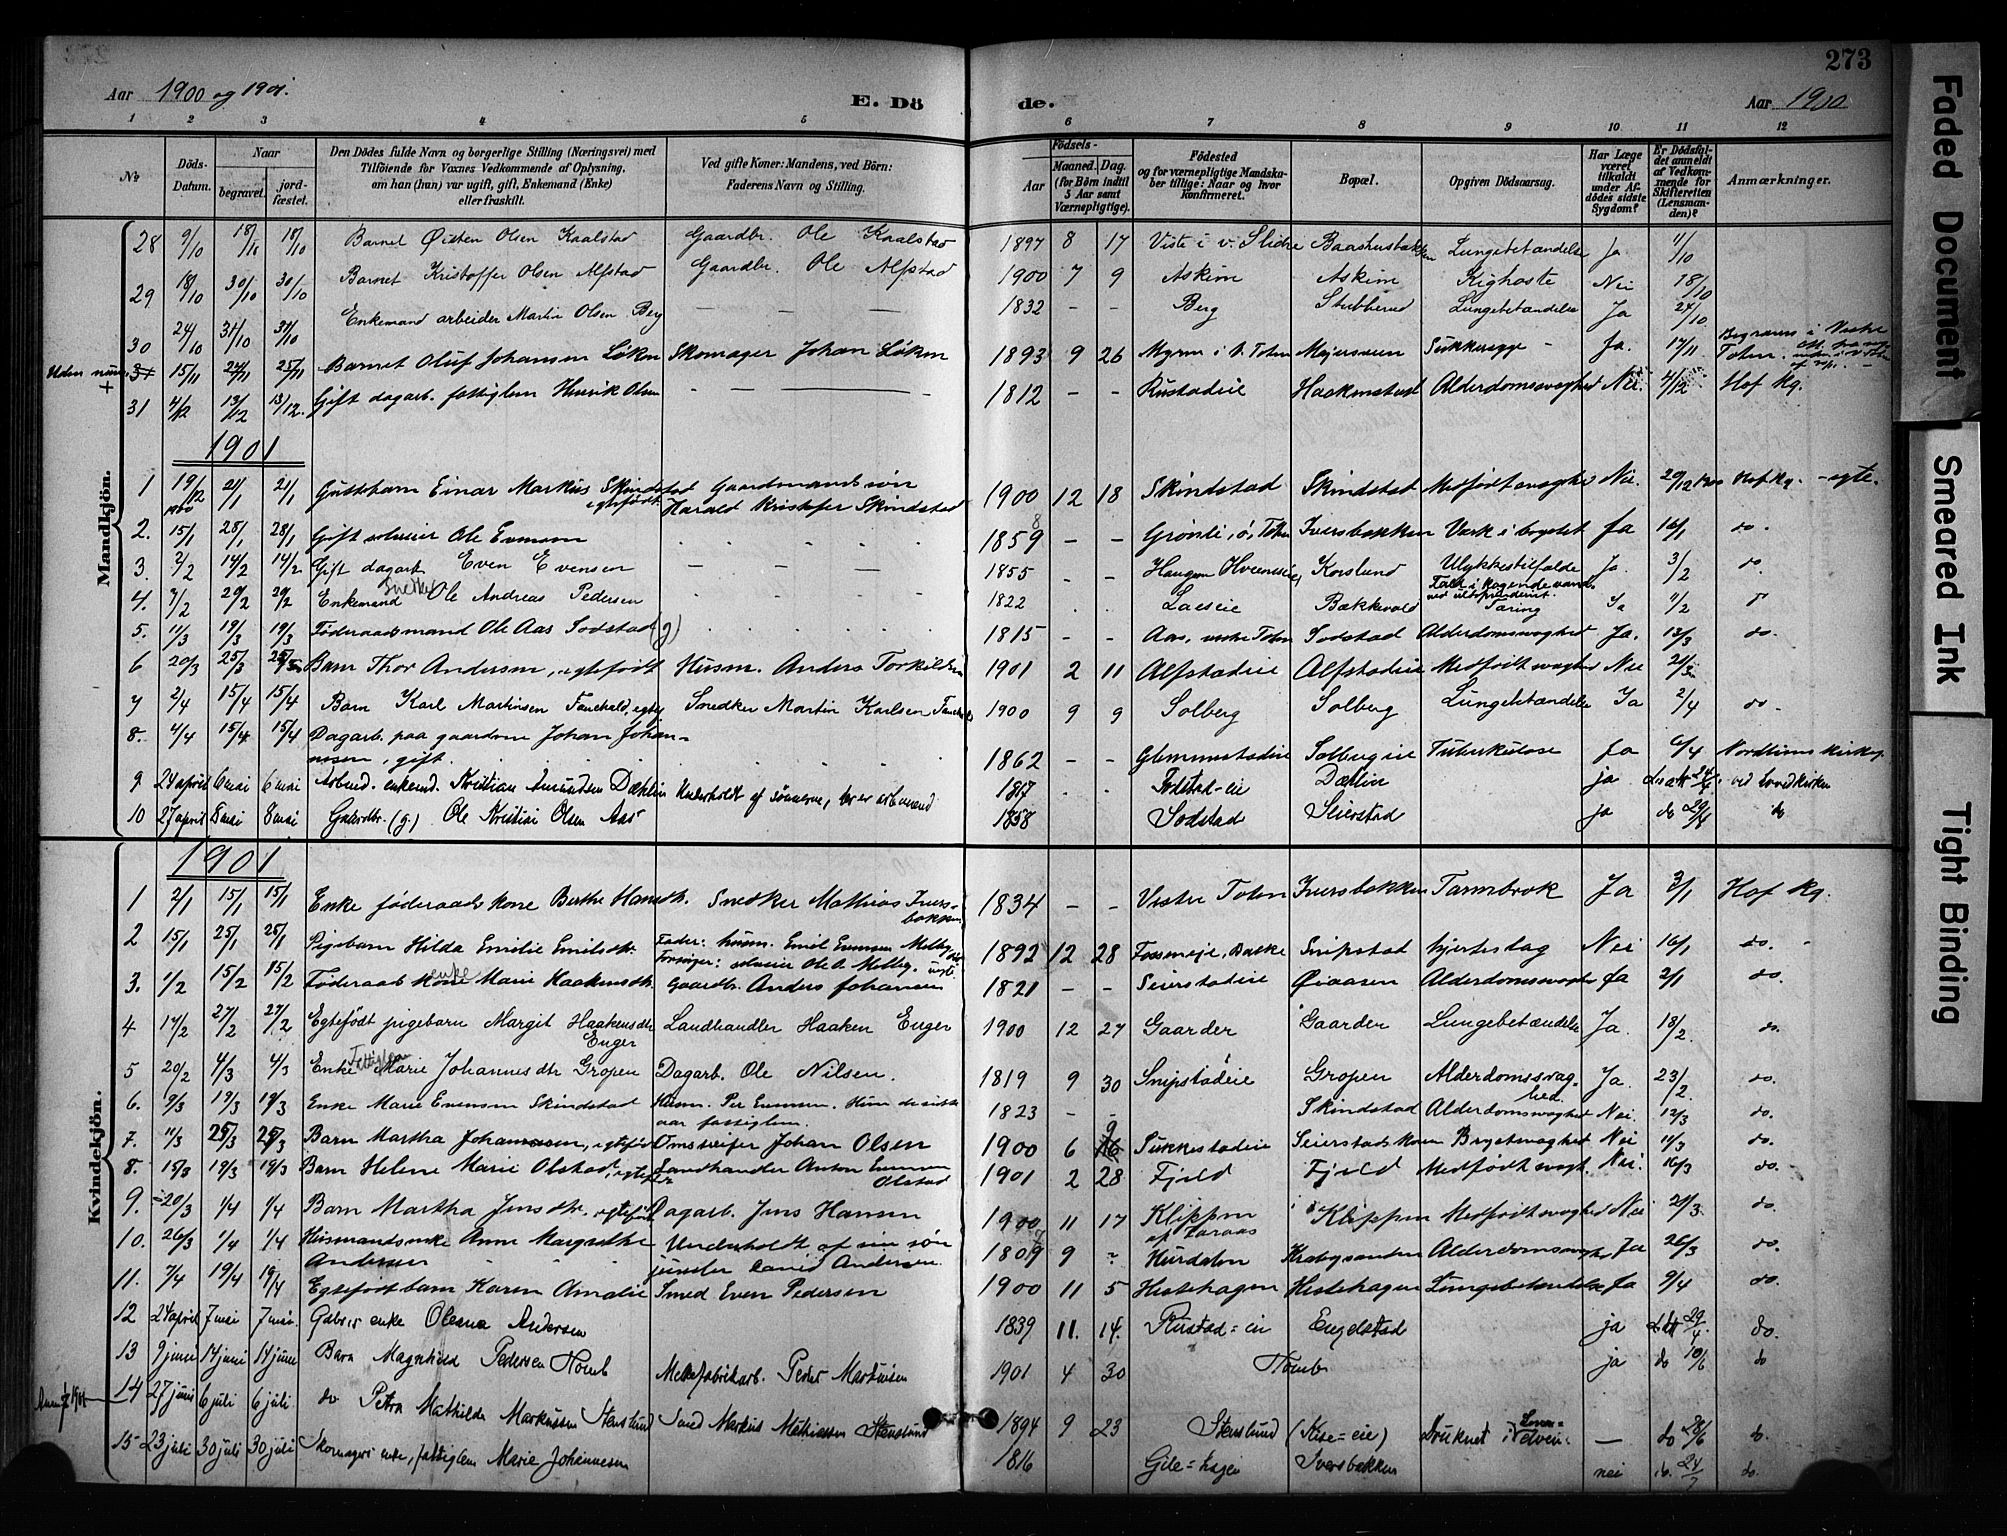 273
Aar 1900 og 1901.
E. Dö
de.
Aar 1900
1 2 3 4 5 6 7 8 9 10 11 12
No
Döds-Datum.
Naar
begravet.
jord-fæstet.
Den Dödes fulde Navn og borgerlige Stilling (Næringsvei) med
Tilföiende for Voxnes Vedkommende af Oplysning,
om han (hun) var ugift, gift, Enkemand (Enke)
eller fraskilt.
Ved gifte Koner: Mandens, ved Börn:
Faderens Navn og Stilling.
Födsels-
Aar
Maaned. Dag.
(for Börn indtil
5 Aar samt
Værnepligtige).
Födested
og for værnepligtige Mandska-
ber tillige: Naar og hvor
konfirmeret.
Bopæl.
Opgiven Dödsaarsag.
Har Læge
været
tilkaldt
under Af-
dödes sidste
Sygdom?
Er Dödsfal-
det anmeldt
af Vedkom-
mende for
Skifteretten
(Lensman-
den)?
Anmærkninger.
Mandkjön.
28 9/10 18/10 18/10 Barnet Østen Olsen Kaalstad Gaardbr. Ole Kaalstad 1897 8 17 Viste i v. Slidre Lungebetændelse Ja 11/10
29 18/10 30/10 30/10 Barnet Kristoffer Olsen Alfstad Gaardbr. Ole Alfstad 1900 7 9 Askim Askim Kighoste Nei 18/10
30 24/10 31/10 31/10 Enkemand arbeider Martin Olsen Berg — — — 1832 - - Berg Stubberud Lungebetændelse Ja 24/10
Uden num. + 15/11 24/11 25/11 Barnet Oluf Johansen Løken Skomager Johan Løken 1893 9 26 Myren i V. Toten Mejersveen Sukkersyge - Ja. 17/11 Begraves i Vestre Toten.
31 4/12 13/12 13/12. Gift dagarb. fattiglem Henrik Olsen 1812 - - Rustadeie Haakenstad Alderdomssvaghed Nei. 4/12 Hof Kg.
1901
1 19/12 1900 21/1 21/1 Guttebarn Einar Markus Skindstad egtefødt Gaardmandssøn Harald Kristofer Skindstad 1900 12 18 Skindstad Skindstad Medfødt svaghed Nei. 29/12 1900 Hof Kg. - egte.
2. 15/1 28/1 28/1 Gift selveier Ole Evensen 1859 - - Grønli, ø. Toten Iversbakken Værk i brystet Ja 16/1 do.
3. 2/2 14/2 14/2 Gift dagarb Even Evensen — — — 1855 - - Korslund Ulykkestilfælde Faldt i kogende vand Ja. 3/2 do.
4. 7/2 20/2 20/2 Enkemand Snedker Ole Andreas Pedersen 1822 . . Laeseie Bækkevold Tæring Ja 11/2
5. 11/3 19/3 19/3 Føderaadsmand Ole Aas Sodstad (g) 1815 - - Aas, vestre Toten Sodstad Alderdomssvaghed Ja. 12/3 do.
6 20/3 25/3 25/3 Barn Thor Andersen, egtefødt Husm. Anders Torkildsen 1901 2 11 Alfstadeie Alfstadeie Medfødt svaghed Nei 21/3 do.
7 2/4 15/4 15/4 Barn Karl Martinsen egtef Snedker Martin Karlsen 1900 9 9 Solberg Solberg Lungebetændelse Ja 2/4 do.
8. 4/4 15/4 15/4 Dagarb. paa gaardene Johan Johan-
nesen, gift. 1862 - - Glemmestadeie Solbergeie Tuberkulose Ja 6/4
9 24 april 6 mai 6 mai Arbmd. enkemd. Kristian Amundsen Dæhlin Underholdt af sønnerne, 1817 . . Dæhlin ja
10 27 april 8 mai 8 mai Gaardbr. (g.) Ole Kristian Olsen Aas 1858 Sodstad Seierstad ja do 29/4 do
Kvindekjön.
1901
1 2/1 15/1 15/1 Enke føderaadskone Berthe Hansdtr. Snedker Mathias Iversbakken 1834 - - Vestre Toten Iversbakken Tarmbrok Ja 3/1 Hof Kg.
2 15/1 25/1 25/1 Pigebarn Hilda Emilie Emilsdtr. Fader: husm. Emil Evensen Melby Forsørger: selveier Ole A. Melby. 1892 12 28 Snipstad hjerteslag Nei 16/1 do.
3. 1/2 15/2 15/2 Føderaads enke Marie Haakensdtr. Gaardbr. Anders Johansen 1821 - - Seierstadeie Øiaasen Alderdomssvaghed Ja 2/1 do.
4 17/2 27/2 27/2 Egtefødt pigebarn Margit Haakensdtr Enger Landhandler Haaken Enger 1900 12 27 Gaarder Gaarder Lungebetændelse Ja. 18/2 do.
5 20/2 4/3 4/3 Enke Fattiglem Marie Johannesdtr Gropen Dagarb. Ole Nilsen. 1819 9 30 Snipstadeie Gropen Alderdomssvag-
hed Ja. 23/2. do.
6. 9/3 19/3 19/3 Enke Marie Evensen Skindstad Husm. Per Evensen. Hun de sidste
aar fattiglem. 1823 - - Skindstad Alderdomssvaghed Nei. 12/3 do.
7. 11/3 25/3 25/3 Barn Martha Johannesen, egtefødt Omstreifer Johan Olsen 1900 6 9 Sukkestadeie Brystsvaghed Nei 11/3 do.
8. 15/3 19/3 19/3 Barn Helene Marie Olstad, egtefødt Landhandler Anton Evensen Olstad 1901 2 28 Fjeld Fjeld Medfødt svagh. Nei. 16/3 do.
9. 20/3 1/4 1/4 Barn Martha Jensdtr. egtefødt Dagarb. Jens Hansen 1900 11 17 Klippen Klippen Medfødt svaghed Nei 21/3. do.
10. 26/3 1/4 1/4 Husmandsenke Anne Margrethe
Andersen Underholdt af sin søn Andersen. 1809 9 - Hurdalen Alderdomssvaghed Ja 26/3 do.
11. 7/4 19/4 19/4 Egtefødt barn Karen Amalie Smed Even Pedersen 1900 11 5 Hestehagen Hestehagen Lungebetændelse Ja 9/4 do.
12 24 april 7 mai 7 mai. Gabrir enke Olena Andersen 1839 11. 14. Rustad=eie Engelstad ja 29/4. do.
13 9 juni 14 juni 14 juni Barn Magnhild Pedersen Homb Melkefabrikarb. Peder Martinsen 1901 4 30 Homb ja do 10/6 do
14 27 juni 6 juli 6 juli. do Petra Mathilde Markussen Stenslund Markus Mathiassen Stenslund 1894 9 23 Stenslund (Kise=eie) Druknet i elven — do 28/6 do.
15 23 juli 30 juli 30 juli Skomagers enke, fattiglem Marie Johannesen 1816 Gile=hagen Iversbakken nei do. 24/7 do.
Faded Document
Smeared Ink
Tight Binding